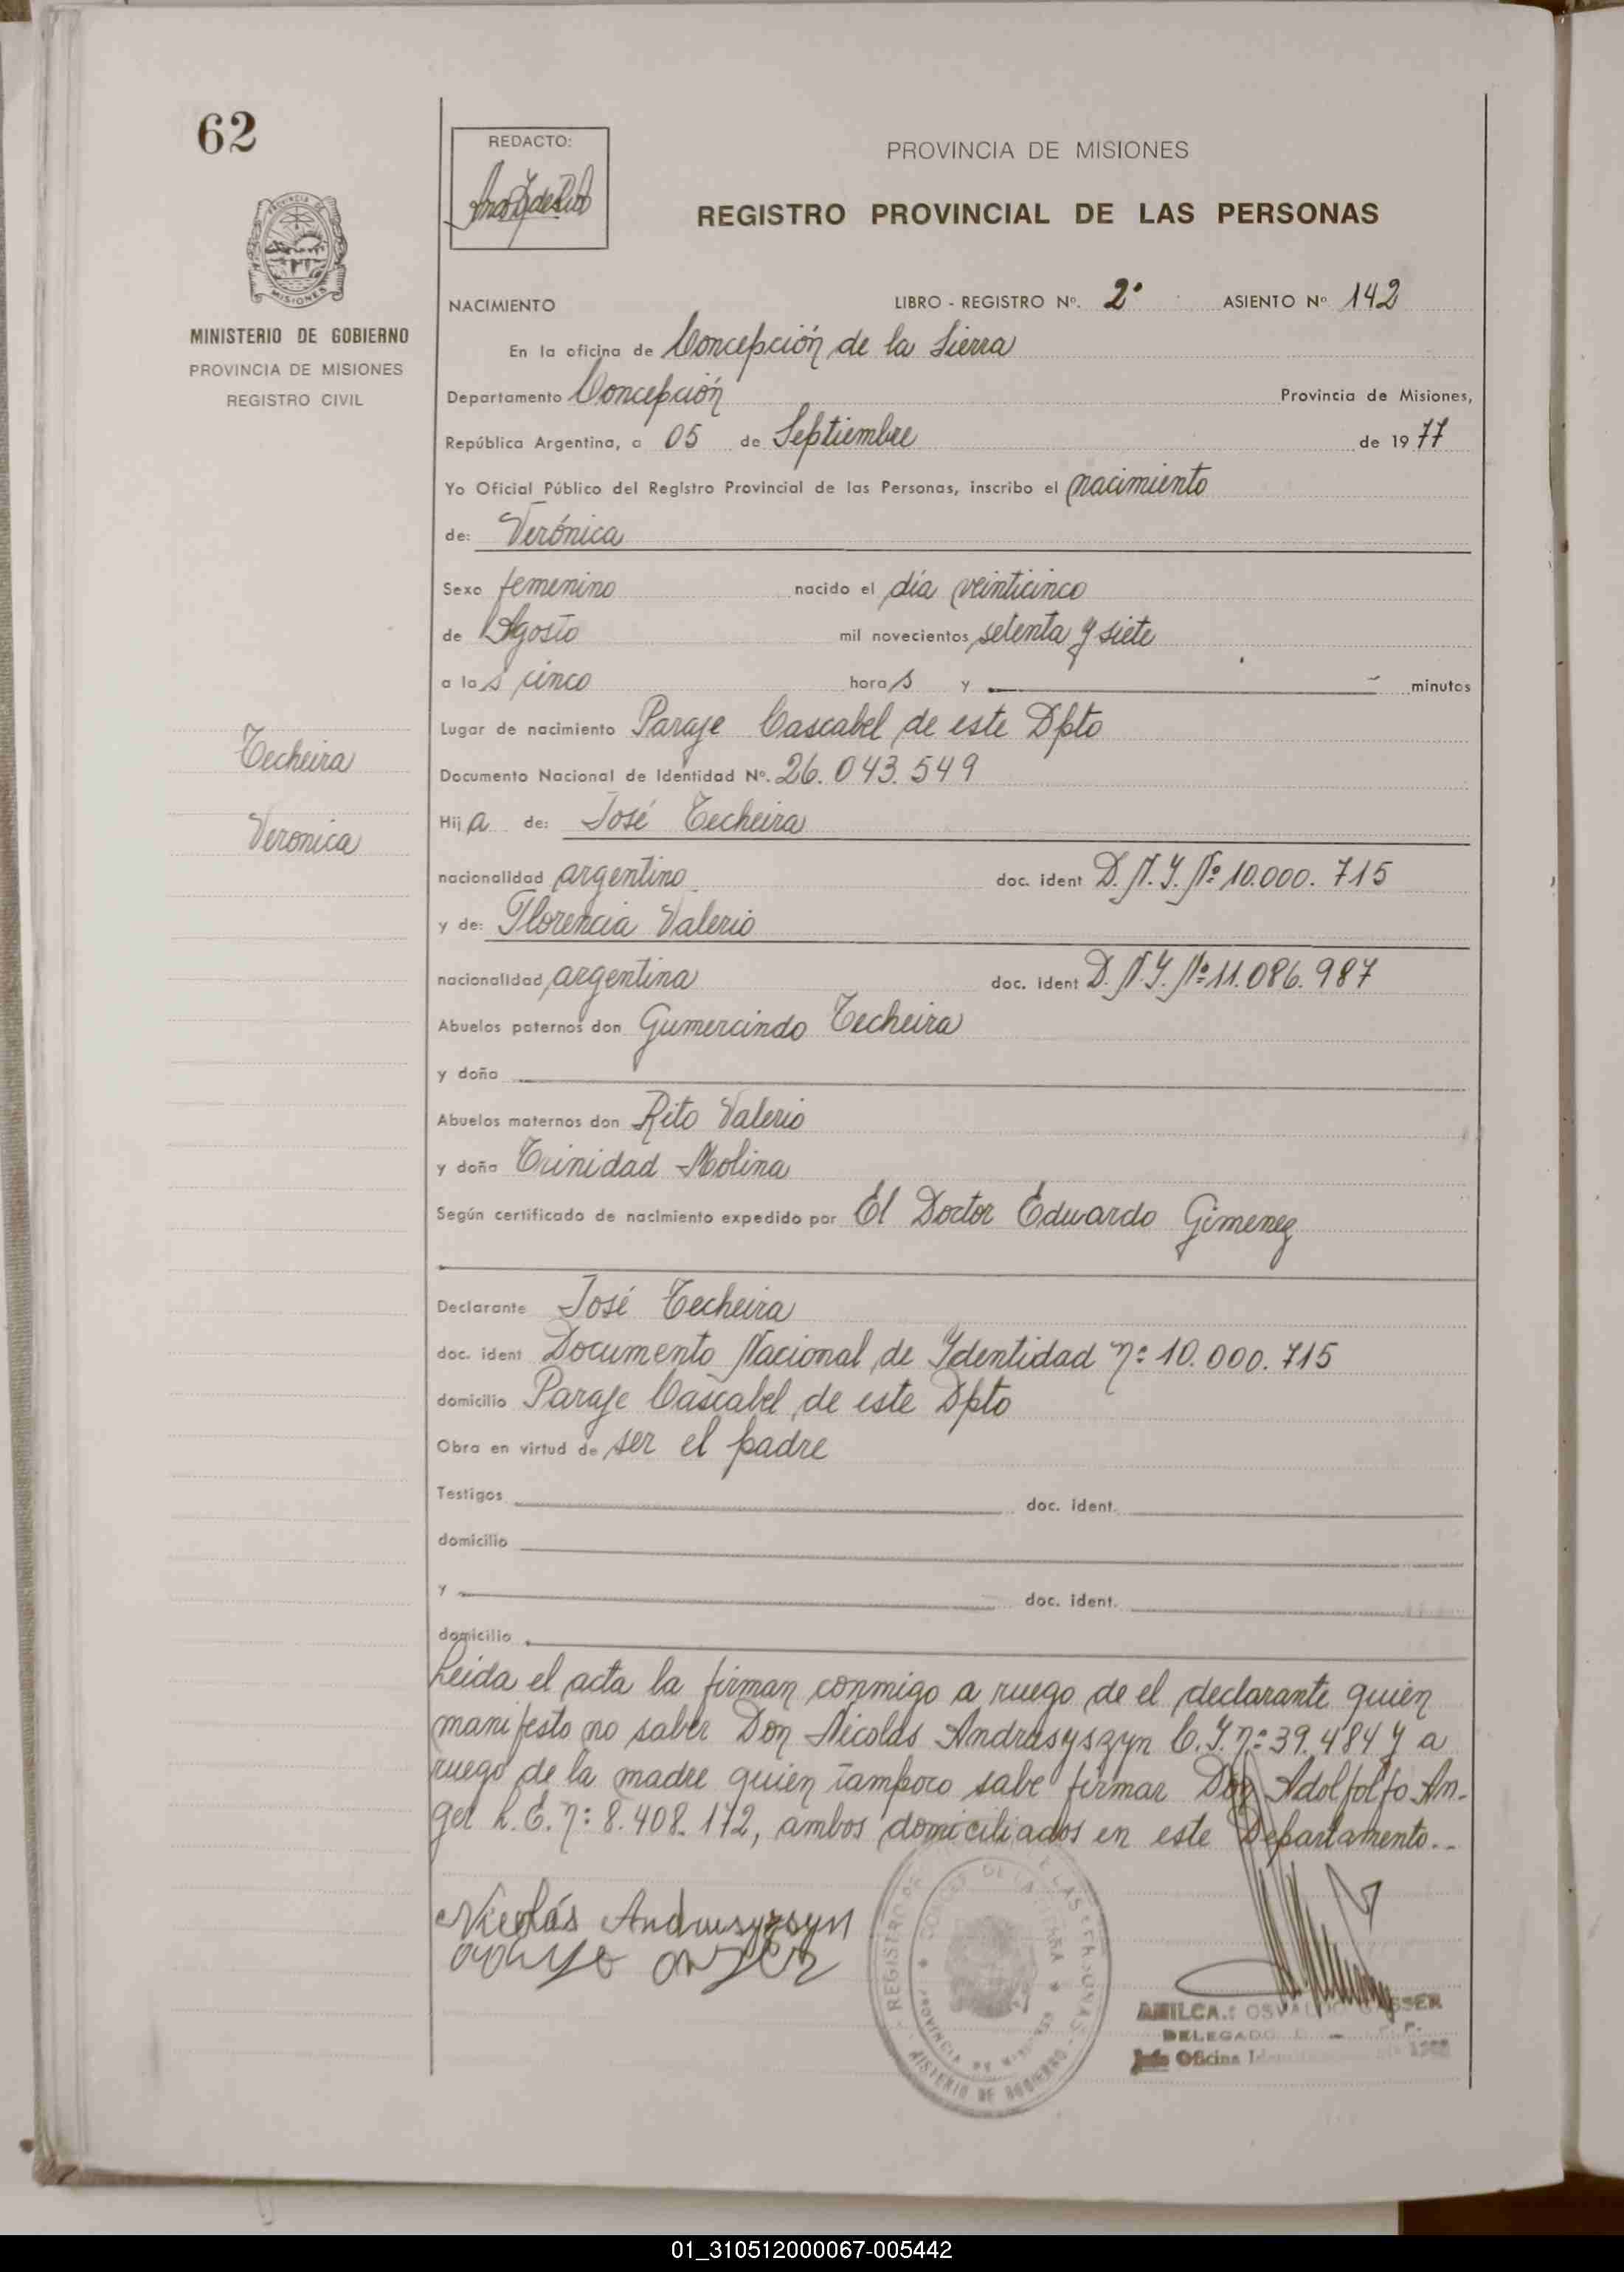 62
REDACTO:
PROVINCIA DE MISIONES
REGISTRO PROVINCIAL DE LAS PERSONAS
MISIONES
MINISTERIO DE GOBIERNO
PROVINCIA DE MISIONES
REGISTRO CIVIL
NACIMIENTO LIBRO - REGISTRO Nº. 2º ASIENTO Nº 142
En la oficina de Concepción de la Sierra
Departamento Concepción Provincia de Misiones,
República Argentina, a 05 de Septiembre de 1977
Yo Oficial Público del Registro Provincial de las Personas, inscribo el nacimiento
de: Verónica
Sexo femenino nacido el día veinticinco
de Agosto mil novecientos setenta y siete
a las cinco horas y minutos
Lugar de nacimiento Paraje Cascabel de este Dpto
Techeira
Documento Nacional de Identidad Nº. 26.043.549
Veronica
Hija de: José Techeira
nacionalidad argentino doc. ident D.N.I. Nº 10.000.715
y de: Florencia Valerio
nacionalidad argentina doc. ident D.N.I. Nº 11.086.987
Abuelos paternos don Gumercindo Techeira
y doña
Abuelos maternos don Rito Valerio
y doña Trinidad Molina
Según certificado de nacimiento expedido por El Doctor Eduardo Gimenez
Declarante José Techeira
doc. ident Documento Nacional de Identidad nº 10.000.715
domicilio Paraje Cascabel de este Dpto
Obra en virtud de ser el padre
Testigos doc. ident.
domicilio
y doc. ident.
domicilio
Leida el acta la firman conmigo a ruego de el declarante quien
manifesto no saber Don Nicolás Andrusyszyn C.I. nº 39.484 y a
ruego de la madre quien tampoco sabe firmar Don Adolfolfo An-
gel L.E. nº 8.408.172, ambos domiciliados en este Departamento.-
Nicolás Andrusyzsyn
REGISTRO DE LAS PERSONAS
PROVINCIA DE MISIONES
MINISTERIO DE GOBIERNO
OSVALDO
DELEGADO
Jefe Oficina
01_310512000067-005442